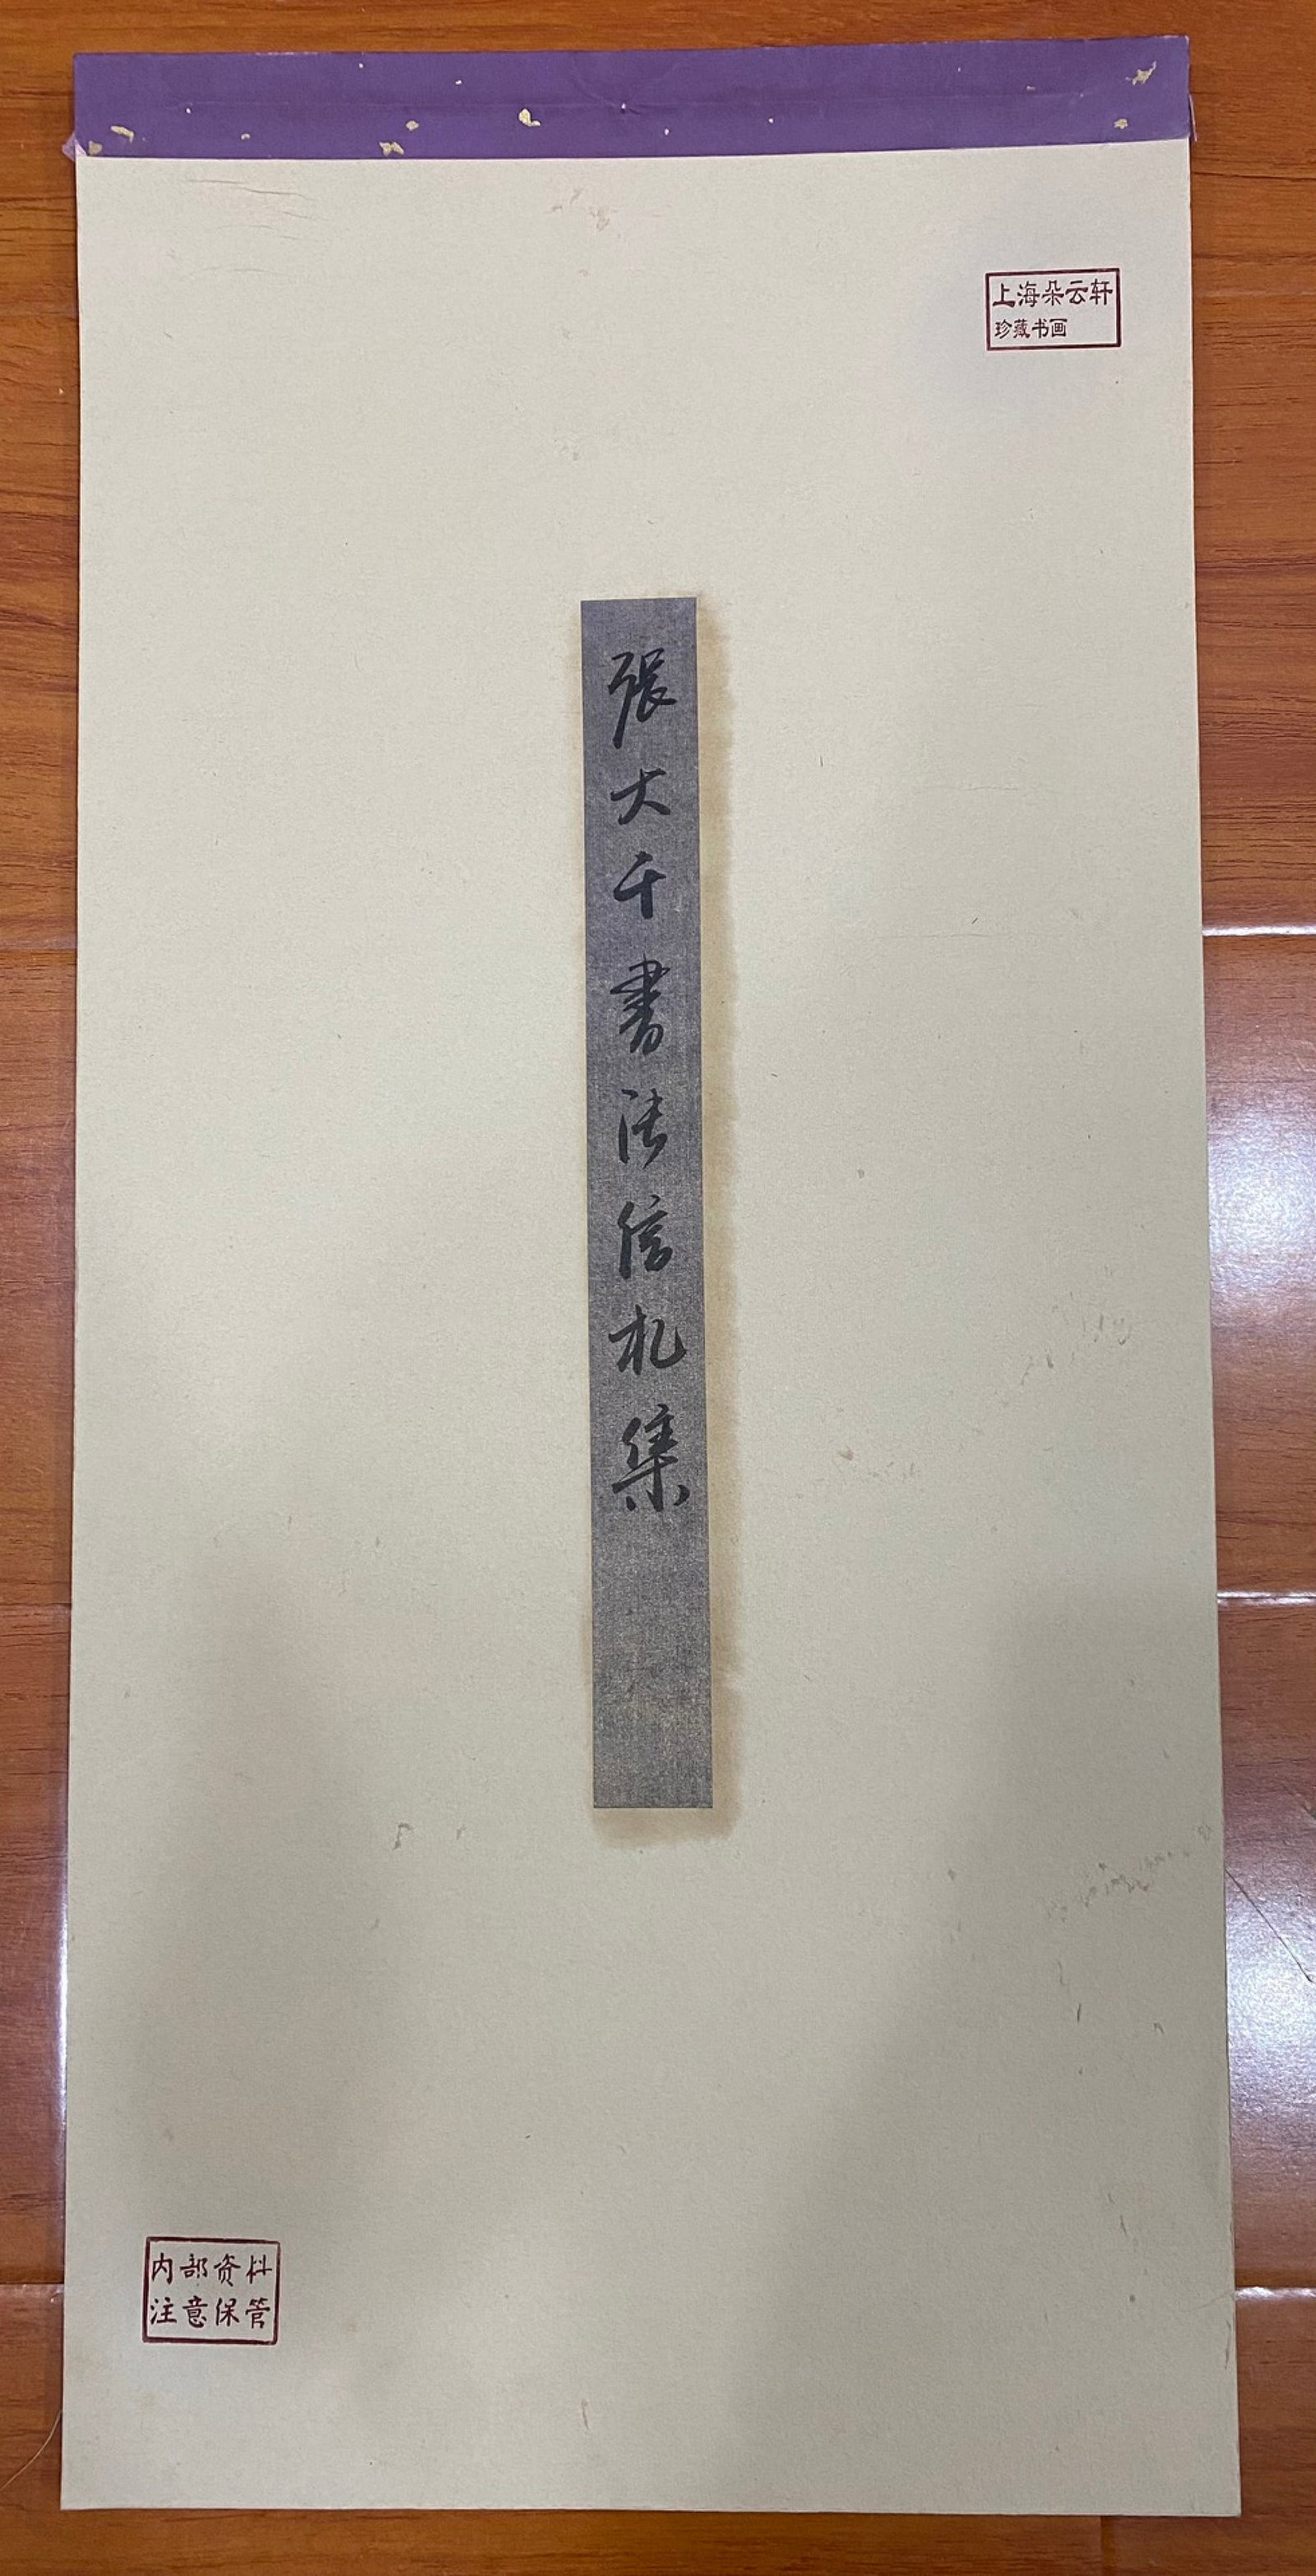 上海朵云轩
珍藏书画
張大千書法信札集
内部资料
注意保管